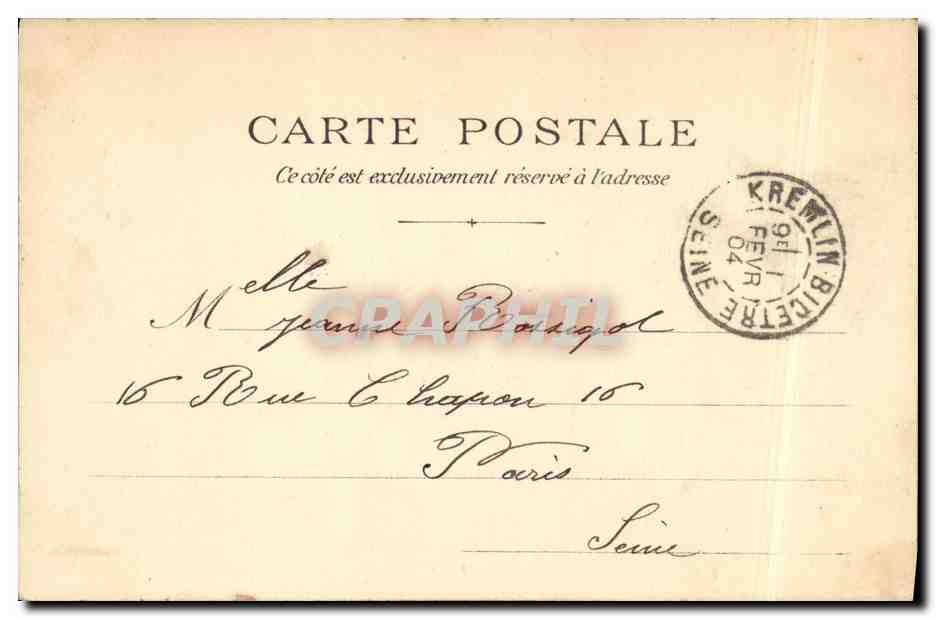 CARTE POSTALE
Ce côté est exclusivement réservé à l'adresse
KREMLIN-BICETRE SEINE
9E 1
FEVR
04
CPAPHIL
Melle Jeanne Rossigol
16 Rue Chapon 16
Paris
Seine